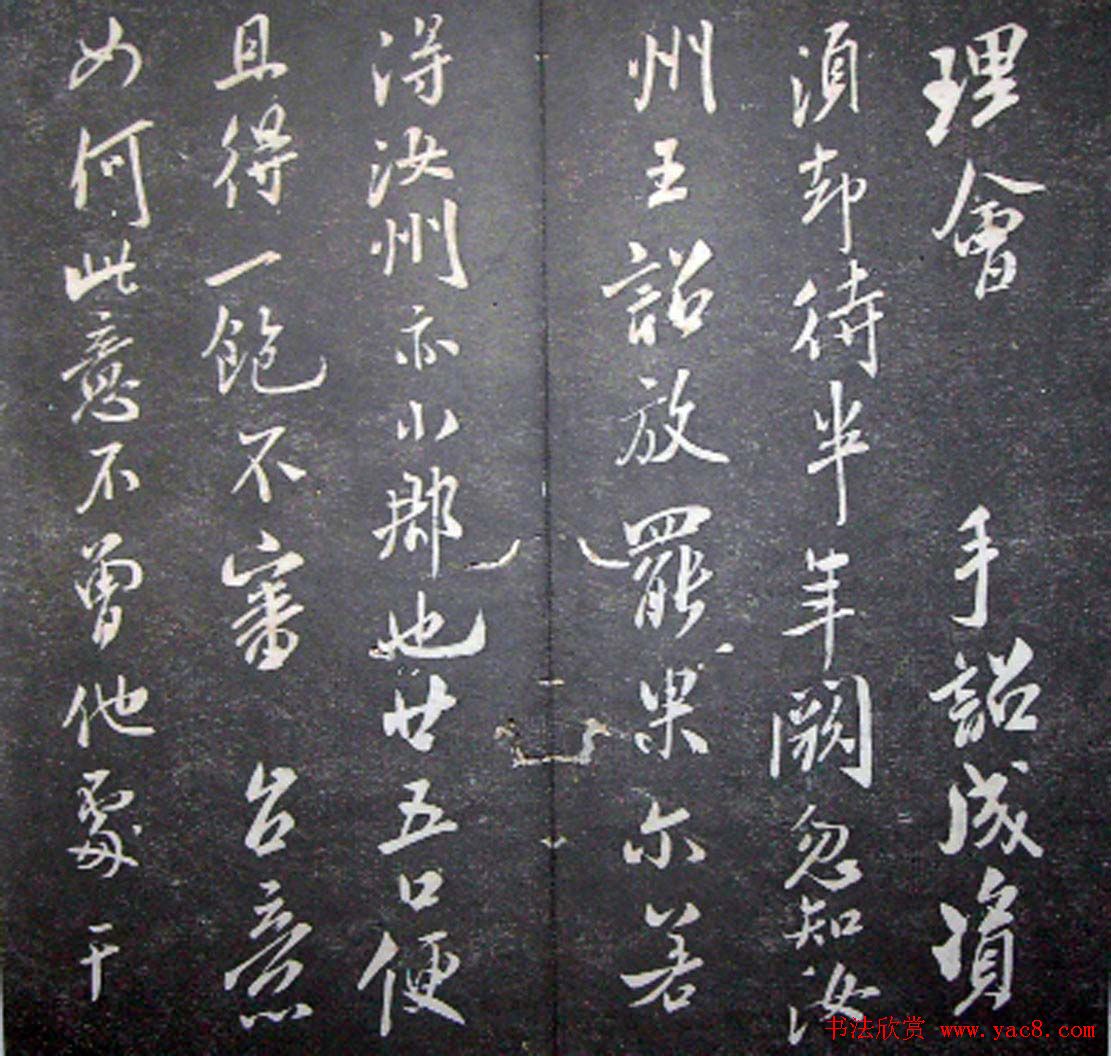 理會 手詔成資
須却待半年闕忽知汝
州王詔放罷果尔若
得汝州亦小郡也廿五口便
且得一飽不審 台意
如何此意不曾他處干
书法欣赏 www.yac8.com